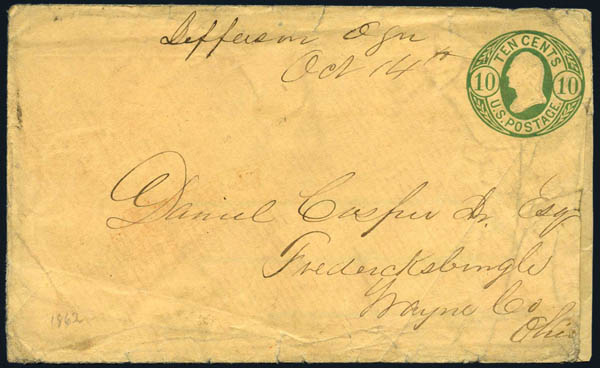 Jefferson Ogn
Oct 14th
TEN CENTS
10 10
U.S. POSTAGE
Daniel Casper Jr. Esq
Fredericksburgh
Wayne Co
Ohio
1862